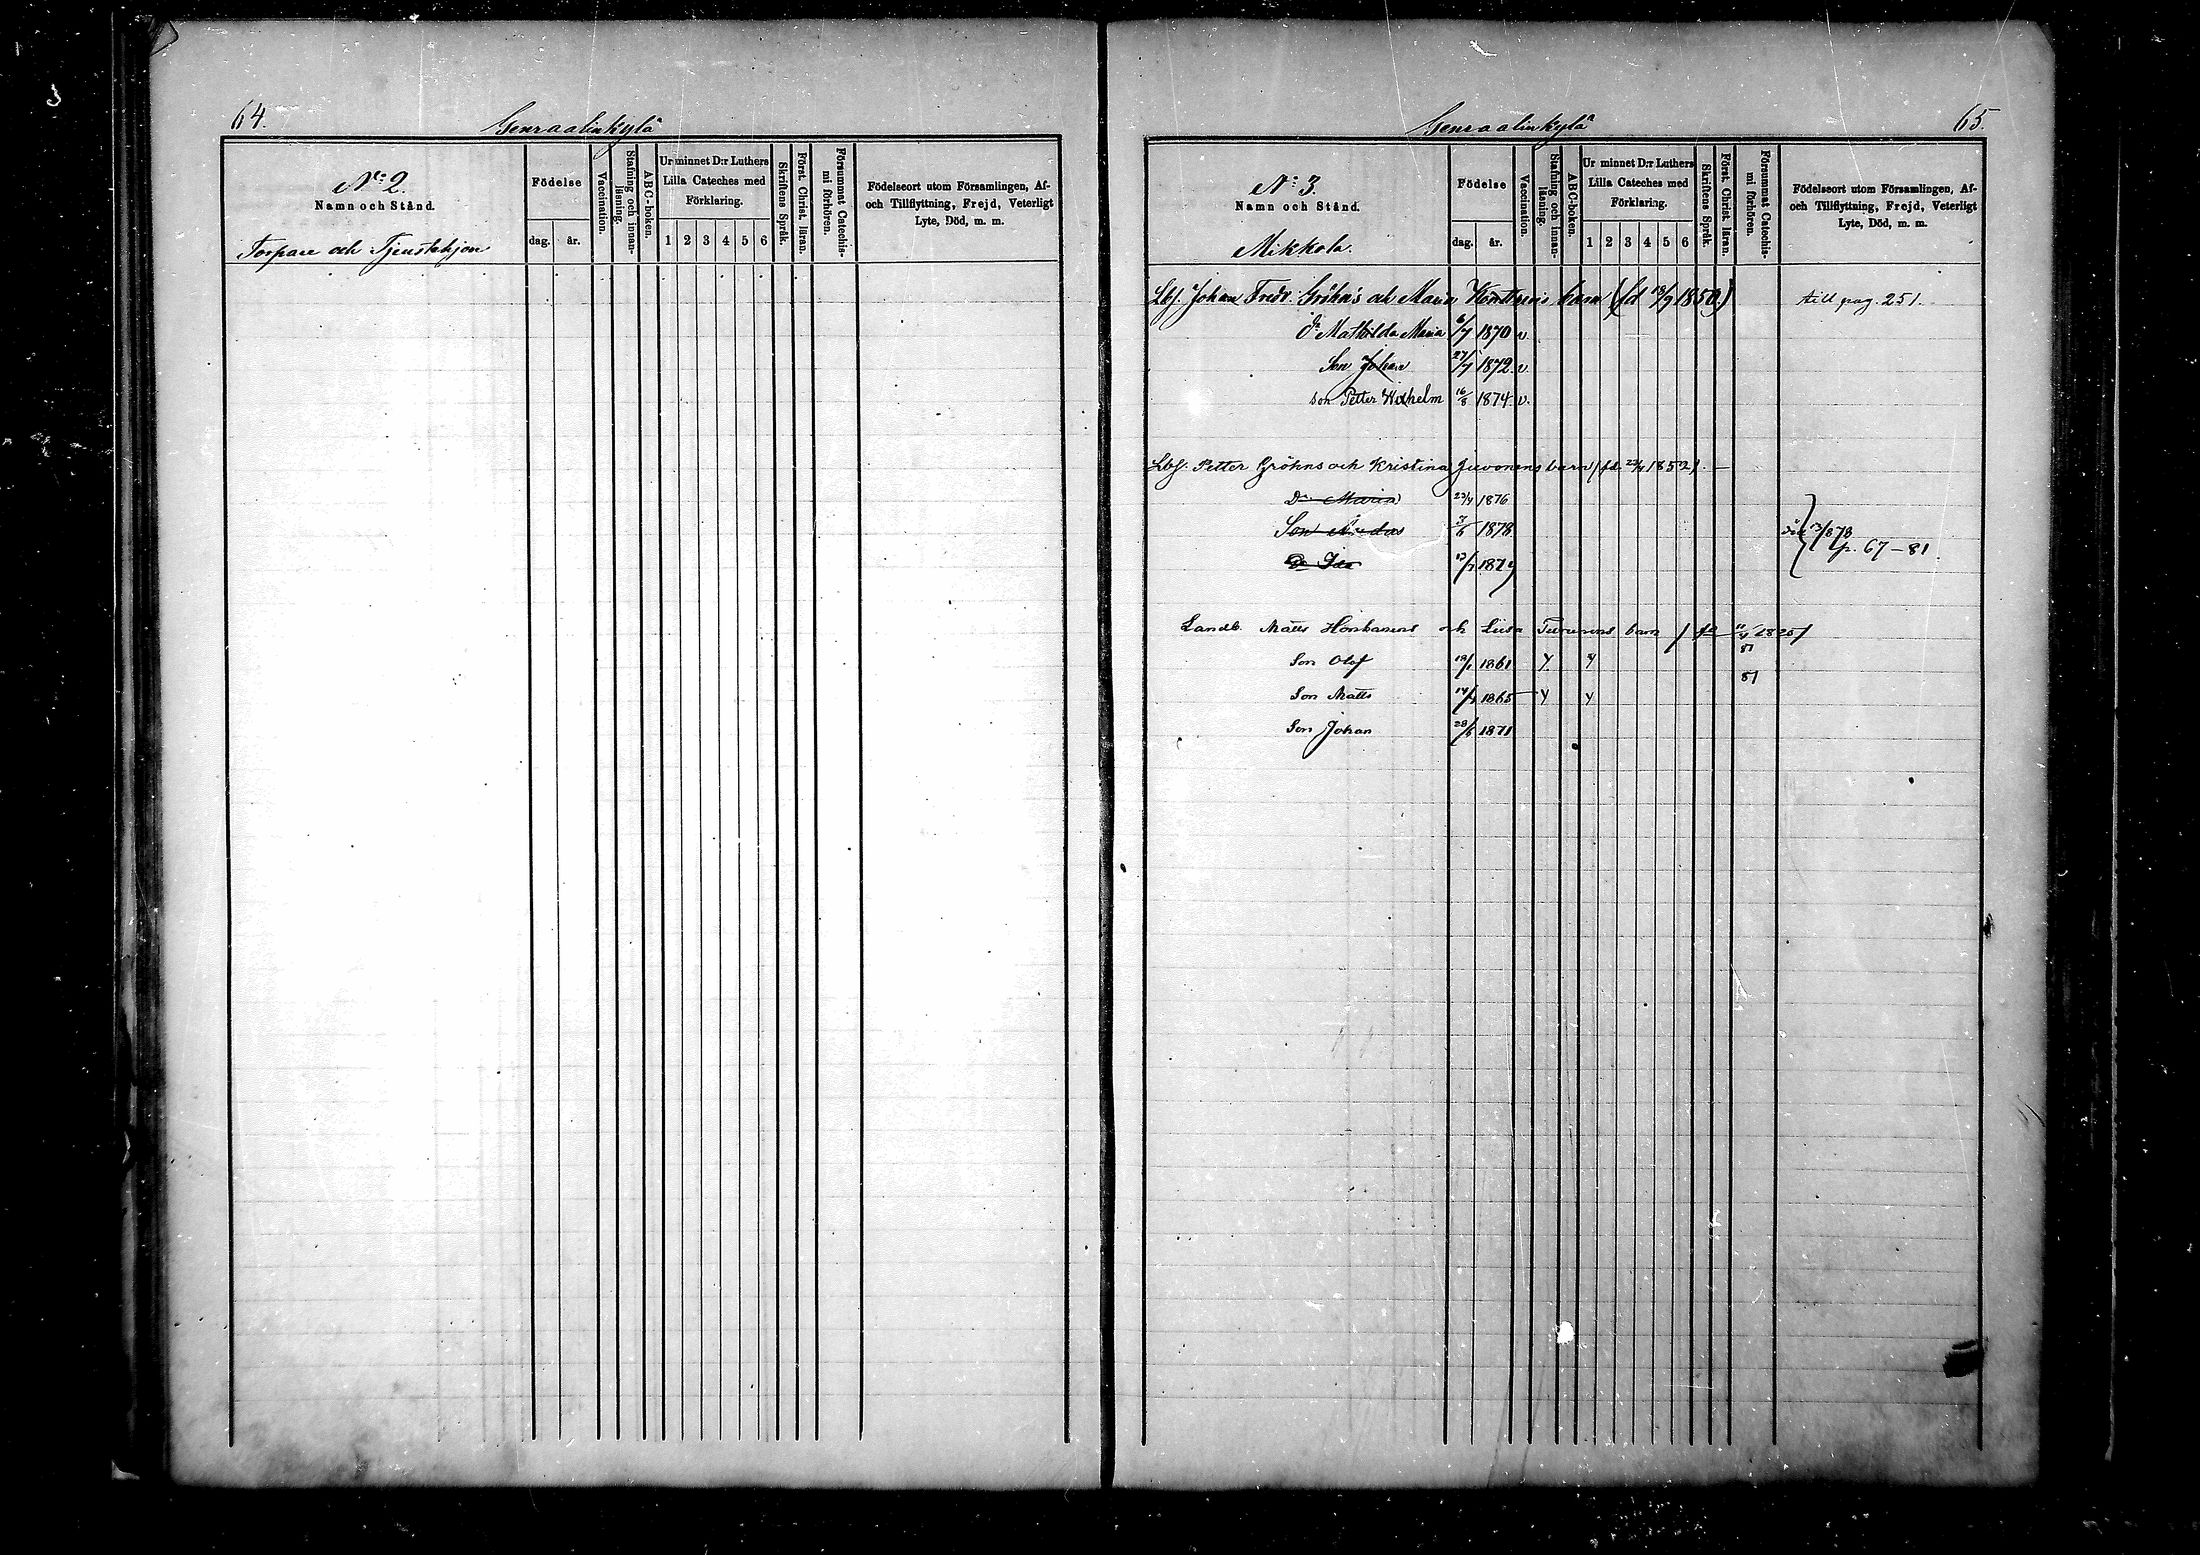 64.
Genraalinkylä
N:o 2.
Namn och Stånd.
Torpare och Tjenstehjon
Födelse
dag. år.
Vaccination.
Stafning och innan-läsning.
ABC-boken.
Ur minnet D:r Luthers
Lilla Cateches med
Förklaring.
1 2 3 4 5 6
Skriftens Språk.
Först. Christ. läran.
Försummat Catechis-
mi förhören.
Födelseort utom Församlingen, Af-
och Tillflyttning, Frejd, Veterligt
Lyte, Död, m. m.
65.
Genraalinkylä
N:o 3.
Namn och Stånd.
Mikkola.
Födelse
dag. år.
Vaccination.
Stafning och innan-läsning.
ABC-boken.
Ur minnet D:r Luthers
Lilla Cateches med
Förklaring.
1 2 3 4 5 6
Skriftens Språk.
Först. Christ. läran.
Försummat Catechis-
mi förhören.
Födelseort utom Församlingen, Af-
och Tillflyttning, Frejd, Veterligt
Lyte, Död, m. m.
Lbf. Johan Fredr. Gröhns och Maria barn (fd 18/9 1850) till pag. 251.
Dr Mathilda Maria 6/7 1870 v.
Son Johan 1872. v.
Son Petter Wilhelm 16/8 1874. v.
Lbf. Petter Gröhns och Kristina Juvonens barn (fd 1852) —
Dr Maria 1876
Son 1878
Dr Ida
p. 67–81
Landb. Matts och Liisa barn
Son Olof 1861 y y 81
Son Matts 1865 y y 81
Son Johan 1871